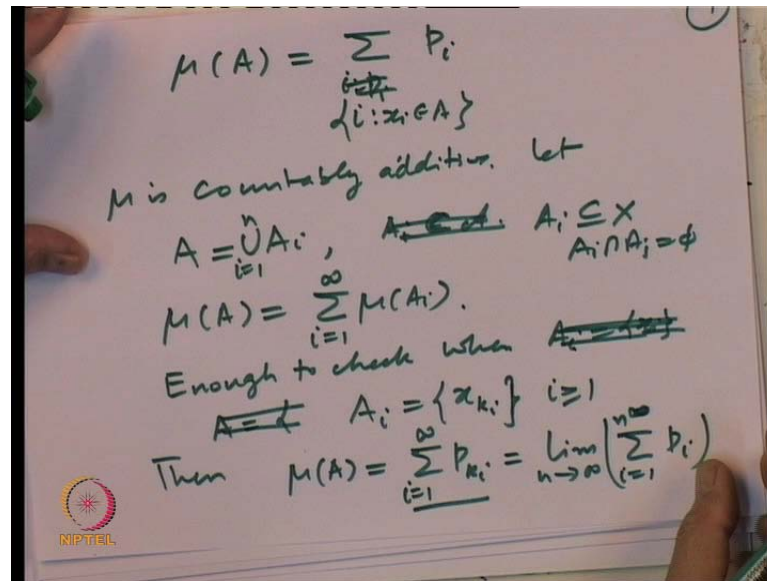 μ(A) = ∑ p_i
{i : x_i ∈ A}
μ is countably additive. Let
A = ⋃_{i=1}^{n} A_i, A_i ⊆ X
A_i ∩ A_j = φ
μ(A) = ∑_{i=1}^{∞} μ(A_i).
Enough to check when
A_i = {x_{k_i}} i ≥ 1
Then μ(A) = ∑_{i=1}^{∞} p_{k_i} = lim_{n→∞} (∑_{i=1}^{n ∞} p_i)
NPTEL